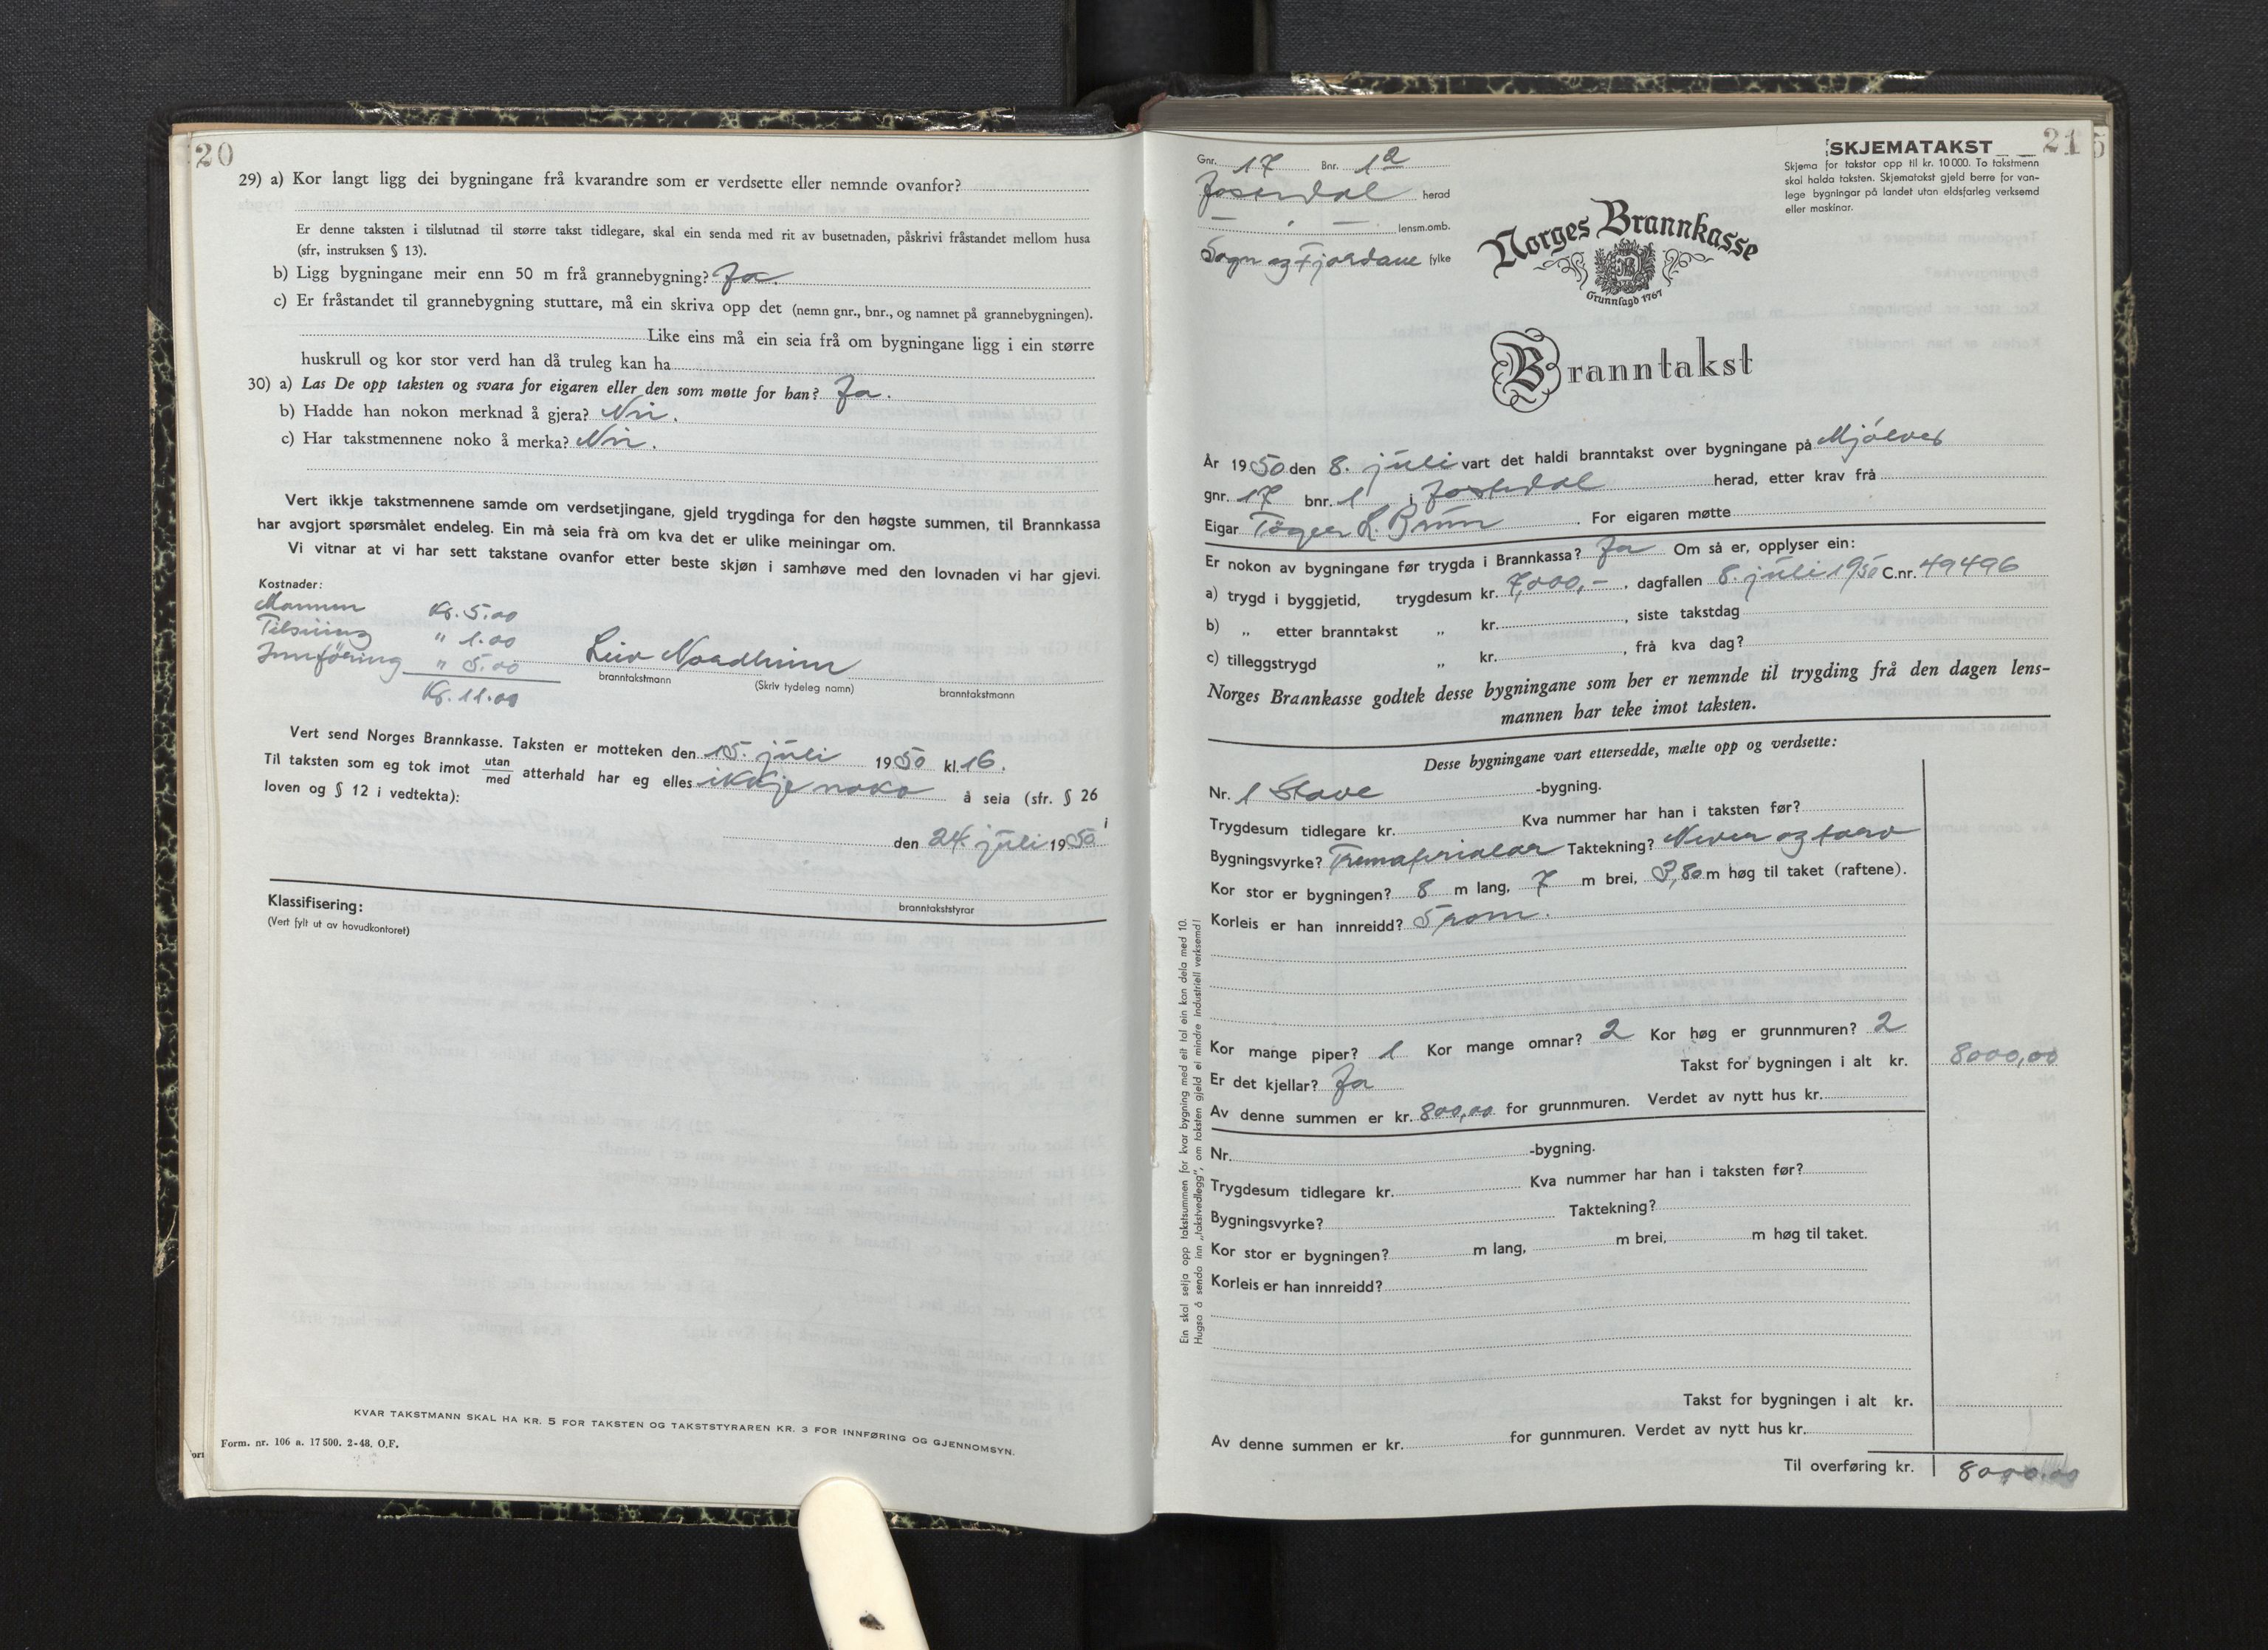 20
29) a) Kor langt ligg dei bygningane frå kvarandre som er verdsette eller nemnde ovanfor?
Er denne taksten i tilslutnad til større takst tidlegare, skal ein senda med rit av busetnaden, påskrivi fråstandet mellom husa
(sfr, instruksen § 13).
b) Ligg bygningane meir enn 50 m frå grannebygning? Ja.
c) Er fråstandet til grannebygning stuttare, må ein skriva opp det (nemn gnr., bnr., og namnet på grannebygningen).
Like eins må ein seia frå om bygningane ligg i ein større
huskrull og kor stor verd han då truleg kan ha
30) a) Las De opp taksten og svara for eigaren eller den som møtte for han? Ja.
b) Hadde han nokon merknad å gjera? Nei.
c) Har takstmennene noko å merka? Nei.
Vert ikkje takstmennene samde om verdsetjingane, gjeld trygdinga for den høgste summen, til Brannkassa
har avgjort spørsmålet endeleg. Ein må seia frå om kva det er ulike meiningar om.
Vi vitnar at vi har sett takstane ovanfor etter beste skjøn i samhøve med den lovnaden vi har gjevi.
Kostnader:
Mannen Kr. 5.00
Tilsining " 1.00
Innføring " 5.00
Kr. 11.00
Leiv Nordheim
branntakstmann (Skriv tydeleg namn) branntakstmann
Vert send Norges Brannkasse. Taksten er motteken den 15. juli 1950 kl. 16.
Til taksten som eg tok imot utan/med atterhald har eg elles ikkje noko å seia (sfr. § 26 i
loven og § 12 i vedtekta):
den 24. juli 1950
branntakststyrar
Klassifisering:
(Vert fylt ut av hovudkontoret)
KVAR TAKSTMANN SKAL HA KR. 5 FOR TAKSTEN OG TAKSTSTYRAREN KR. 3 FOR INNFØRING OG GJENNOMSYN.
Form. nr. 106 a. 17 500. 2-48. O.F.
21
SKJEMATAKST
Skjema for takstar opp til kr. 10 000. To takstmenn
skal halda taksten. Skjematakst gjeld berre for van-
lege bygningar på landet utan eldsfarleg verksemd
eller maskinar.
Gnr. 17 Bnr. 1a
Jostedal herad
lensm.omb.
Sogn og Fjordane fylke
Norges Brannkasse
Grunnlagd 1767
Branntakst
År 1950 den 8. juli vart det haldi branntakst over bygningane på Mjølver
gnr. 17 bnr. 1 i Jostedal herad, etter krav frå
Eigar Tøger L. Brun. For eigaren møtte
Er nokon av bygningane før trygda i Brannkassa? Ja Om så er, opplyser ein:
a) trygd i byggjetid, trygdesum kr. 7,000,-, dagfallen 8. juli 1950 C.nr. 49496
b) „ etter branntakst „ kr., siste takstdag
c) tilleggstrygd „ kr., frå kva dag?
Norges Brannkasse godtek desse bygningane som her er nemnde til trygding frå den dagen lens-
mannen har teke imot taksten.
Desse bygningane vart ettersedde, mælte opp og verdsette:
Nr. 1 Stove -bygning.
Trygdesum tidlegare kr. Kva nummer har han i taksten før?
Bygningsvyrke? Trematerialar Taktekning? Never og torv
Kor stor er bygningen? 8 m lang, 7 m brei, 3,80 m høg til taket (raftene).
Korleis er han innreidd? 5 rom.
Kor mange piper? 1 Kor mange omnar? 2 Kor høg er grunnmuren? 2
Er det kjellar? Ja Takst for bygningen i alt kr. 8000,00
Av denne summen er kr. 800,00 for grunnmuren. Verdet av nytt hus kr.
Nr. -bygning.
Trygdesum tidlegare kr. Kva nummer har han i taksten før?
Bygningsvyrke? Taktekning?
Kor stor er bygningen? m lang, m brei, m høg til taket.
Korleis er han innreidd?
Takst for bygningen i alt kr.
Av denne summen er kr. for gunnmuren. Verdet av nytt hus kr.
Til overføring kr. 8000.00
Ein skal setja opp takstsummen for kvar bygning med eit tal ein kan dela med 10.
Hugsa å senda inn „takstvedlegg", om taksten gjeld ei mindre industriell verksemd!